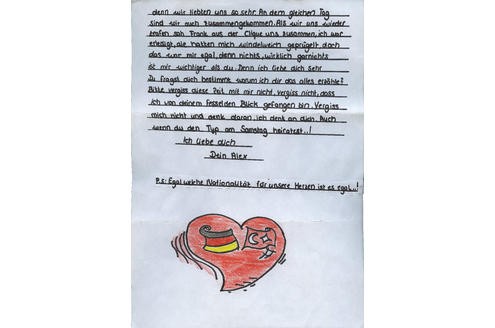 denn wir liebten uns so sehr. An dem gleichen Tag
sind wir auch zusammengekommen. Als wir uns wieder
trafen sah Frank aus der Clique uns zusammen, ich war
erledigt, sie hatten mich windelweich geprügelt doch
das war mir egal, denn nichts, wirklich garnichts
ist mir wichtiger als du. Denn ich liebe dich sehr
Du fragst dich bestimmt warum ich dir das alles erzähle?
Bitte vergiss diese Zeit mit mir nicht, vergiss nicht, dass
ich von deinem fesselden Blick gefangen bin. Vergiss
mich nicht und denk daran, ich denk an dich. Auch
wenn du den Typ am Samstag heiratest..!
Ich liebe dich
Dein Alex
P.S: Egal welche Nationalität für unsere Herzen ist es egal..!